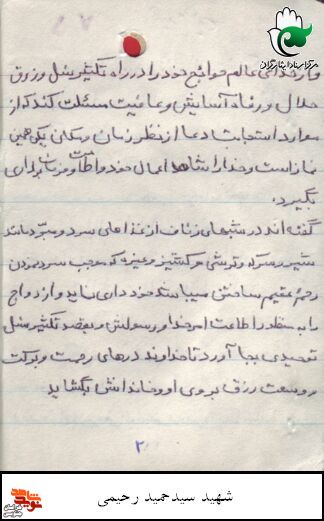 مرکز اسناد ایثارگران
و از خدای عالم حوائج خود را در راه تکثیر نسل و رزق
حلال و رفاه آسایش و عافیت مسئلت کند که از
موارد استجابت دعا از نظر زمان و مکان یکی همین
نماز است و خدا را شاهد اعمال خود و اطاعت و فرمانبرداری
بگیرد.
گفته اند در شبهای زفاف از غذاهای سرد و مبرّد مانند
شیر و سرکه و ترشی و گشنیز و غیره که موجب سرد بودن
رحم و عقیم ساختن میباشد خودداری نماید و ازدواج
را به منظور اطاعت امر خدا و رسولش و بقصد تکثیر نسل
توحیدی بجا آورد تا خداوند درهای رحمت و برکت
و وسعت رزق بروی او و خاندانش بگشاید
۲
شهید سیدحمید رحیمی
نوید شاهد